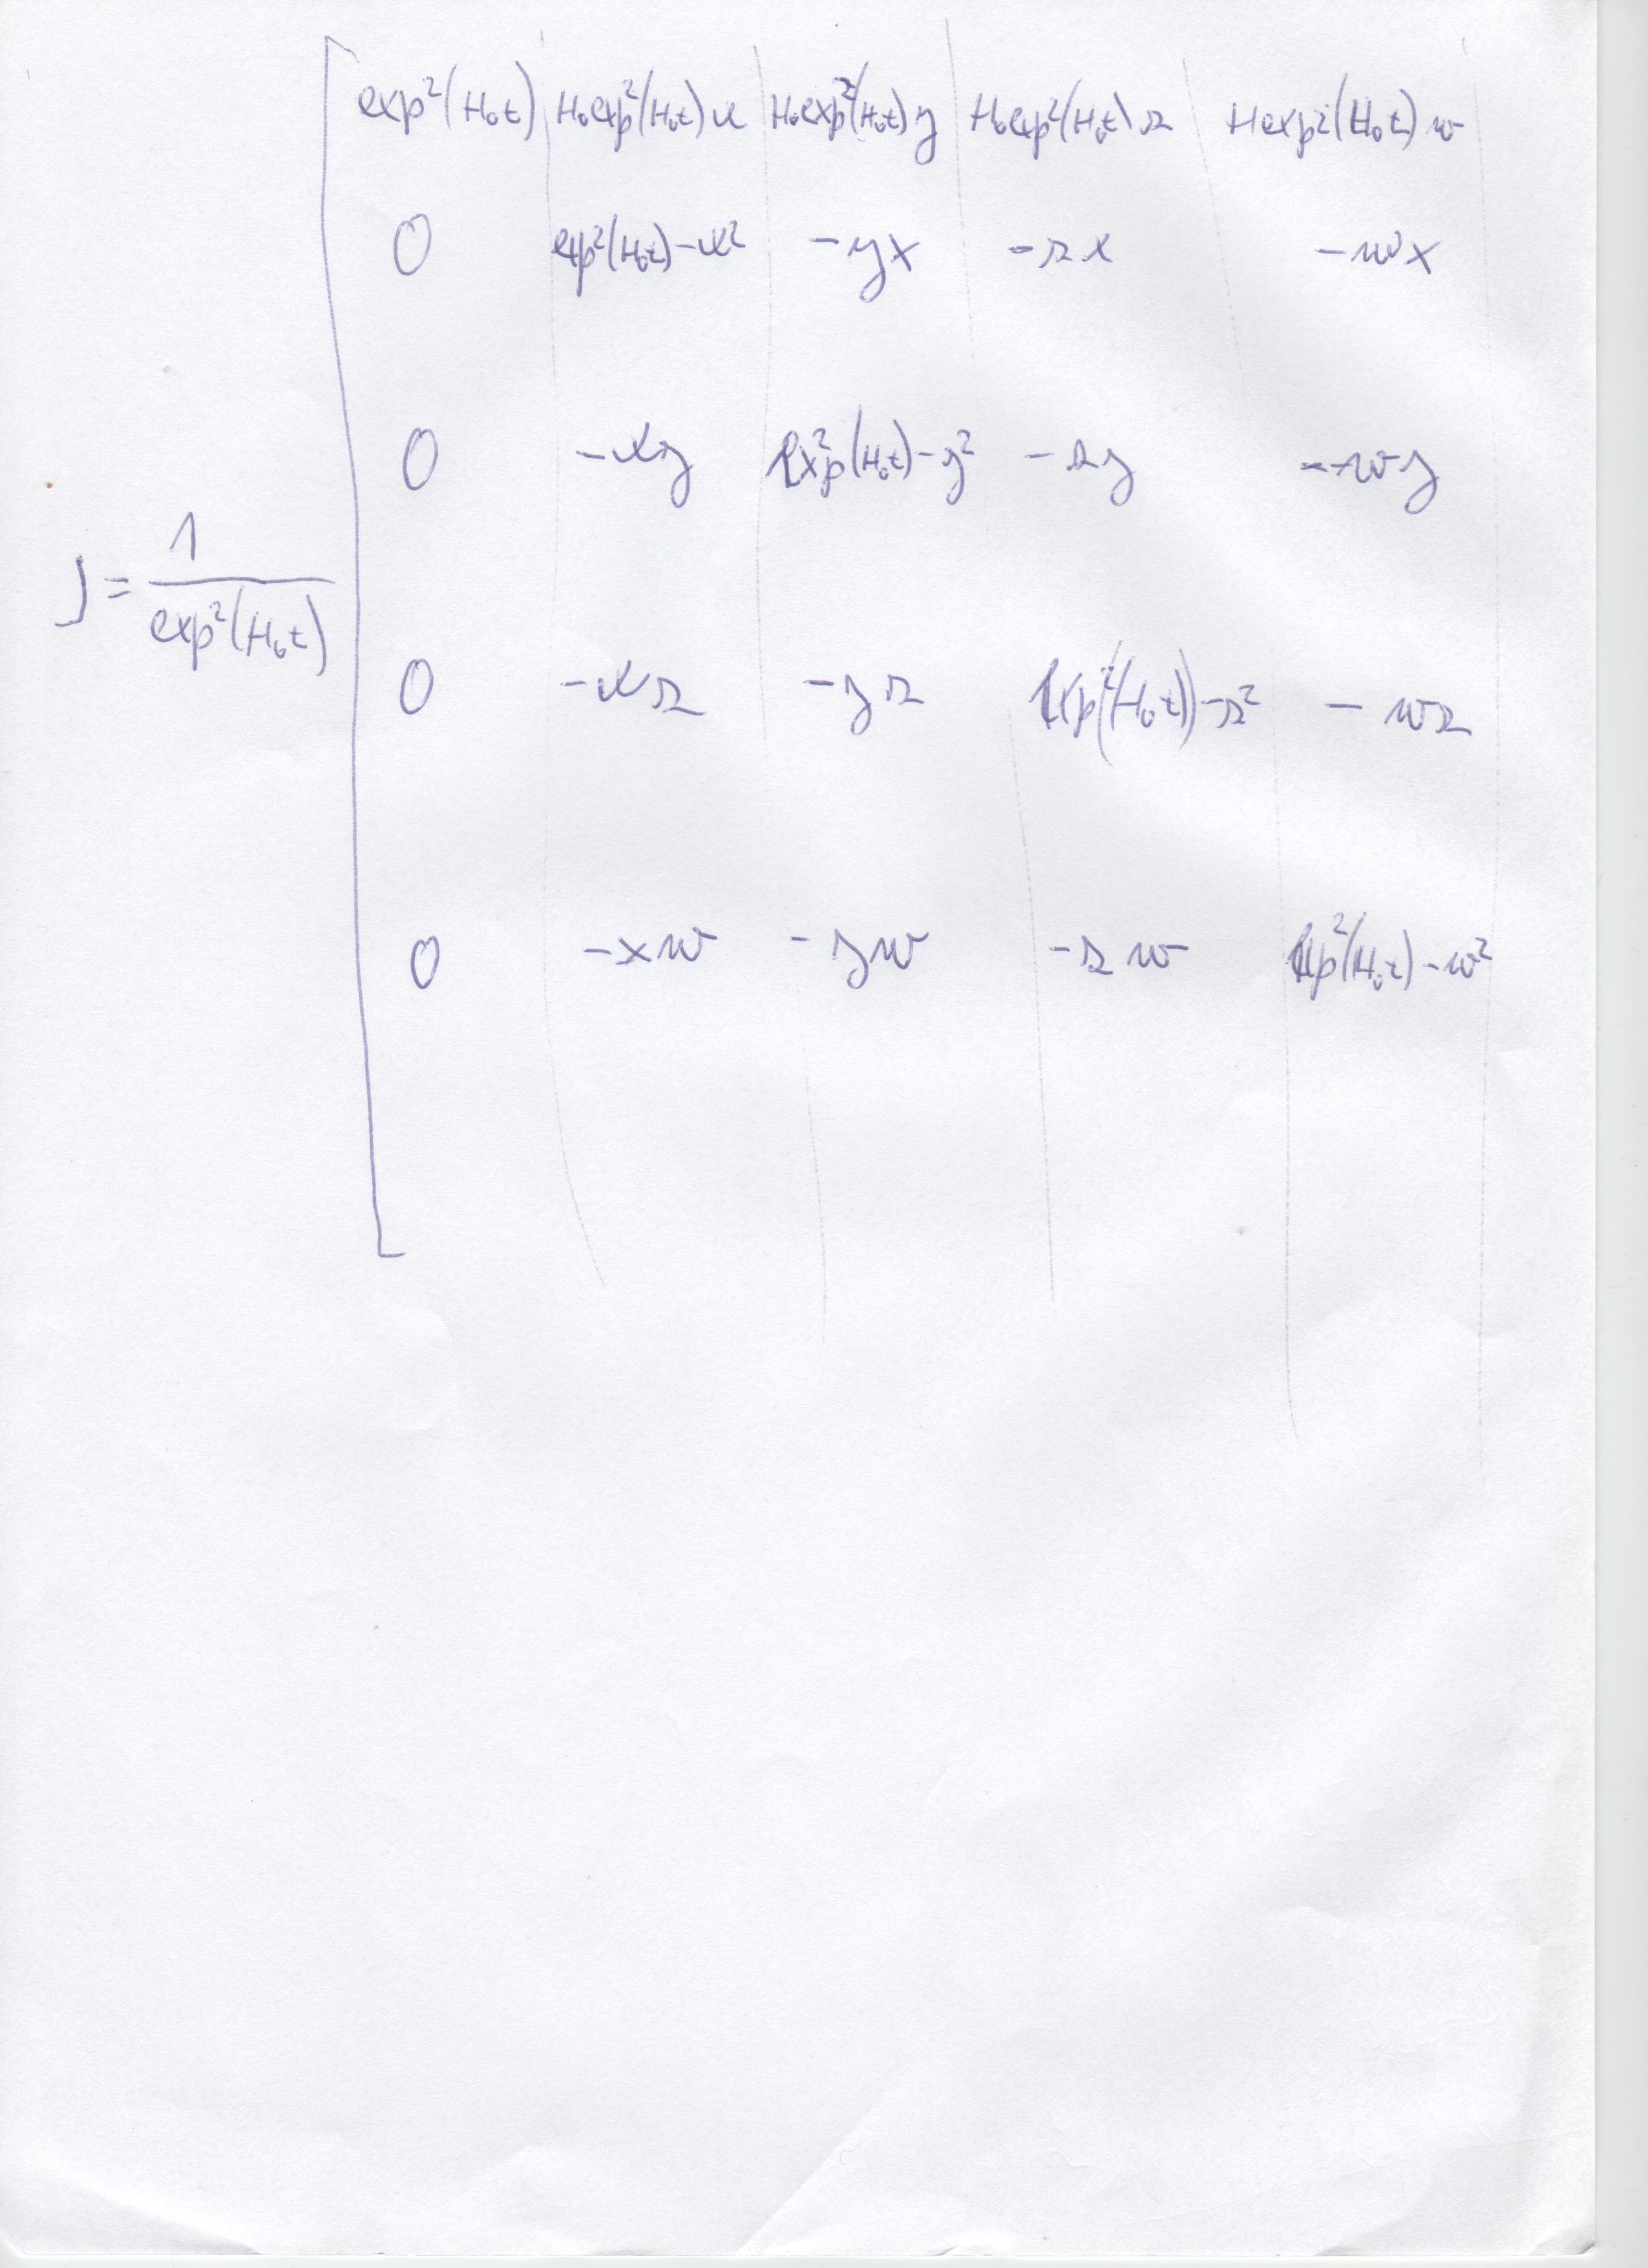 exp²(H₀t) H₀exp²(H₀t)x H₀exp²(H₀t)y H₀exp²(H₀t)z Hexp²(H₀t)w
0 exp²(H₀t)-x² -yx -zx -wx
0 -xy exp²(H₀t)-y² -zy -wy
J = 1/exp²(H₀t)
0 -xz -yz exp²(H₀t)-z² -wz
0 -xw -yw -zw exp²(H₀t)-w²